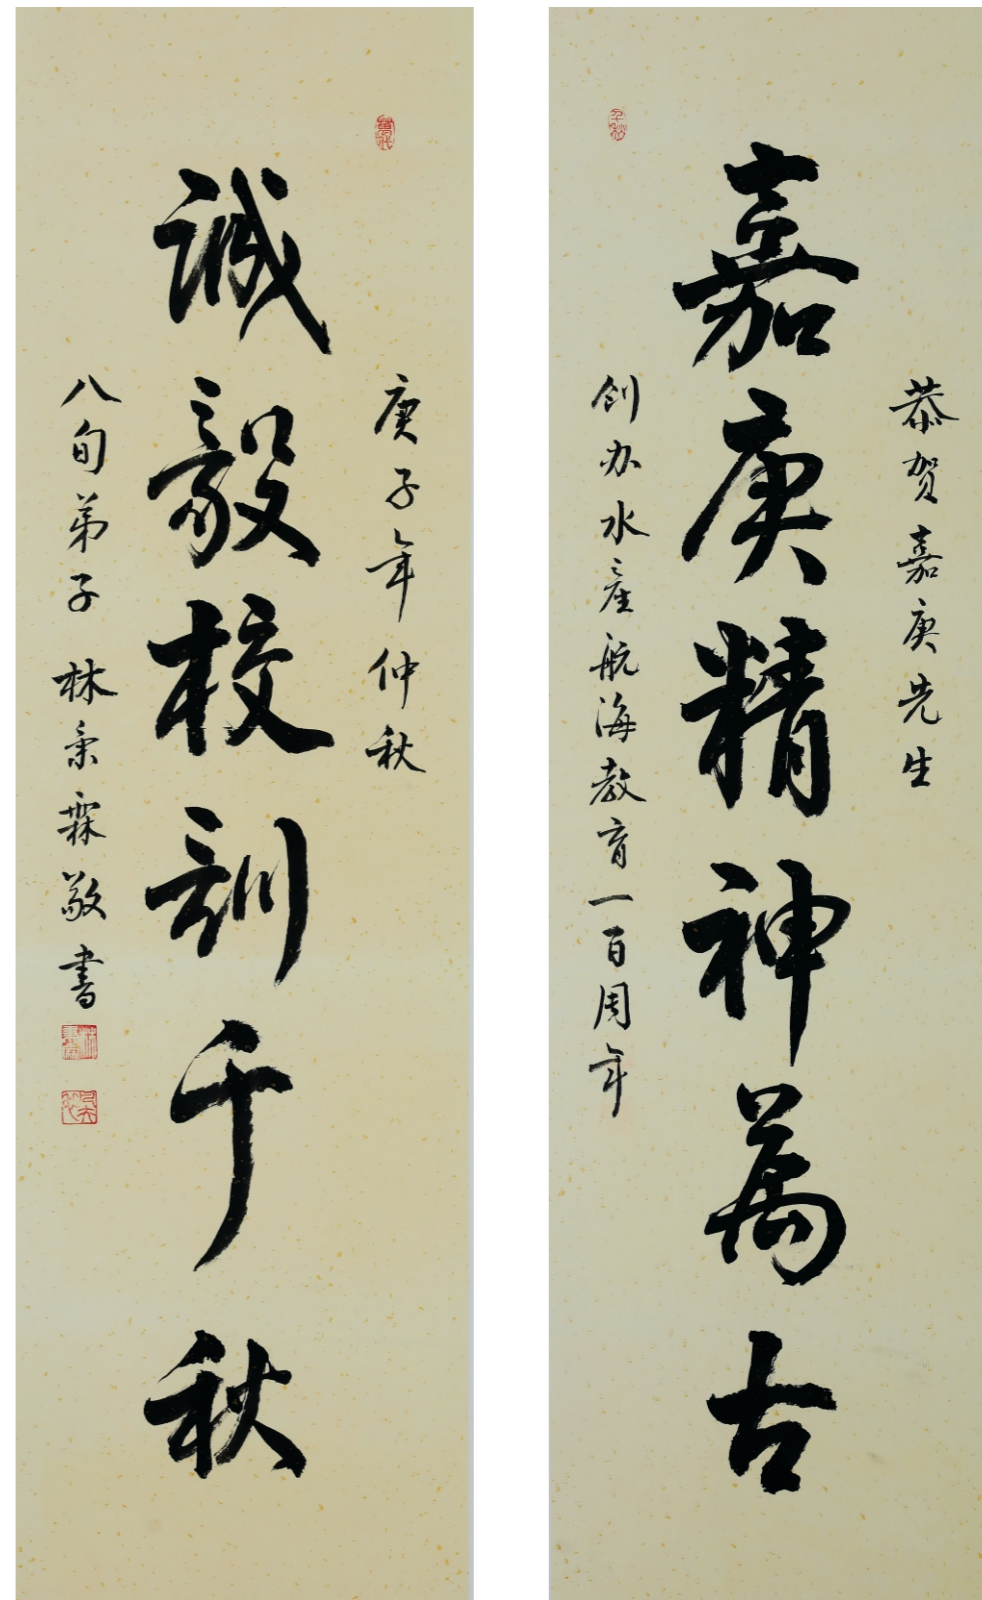 恭贺嘉庚先生
嘉庚精神萬古
创办水産航海教育一百周年
千秋
庚子年仲秋
誠毅校訓千秋
八旬弟子林秉霖敬書
萬代